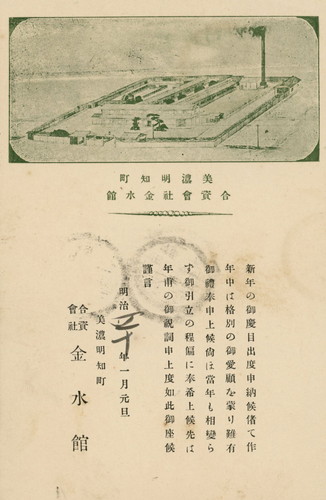 美濃明知町
合資會社金水館
新年の御慶目出度申納候偖て作
年中は格別の御愛顧を蒙り難有
御禮奉申上候尚は當年も相變ら
ず御引立の程偏に奉希上候先は
年甫の御祝詞申上度如此御座候
謹言
明治四十年一月元旦
美濃明知町
合資會社 金水館